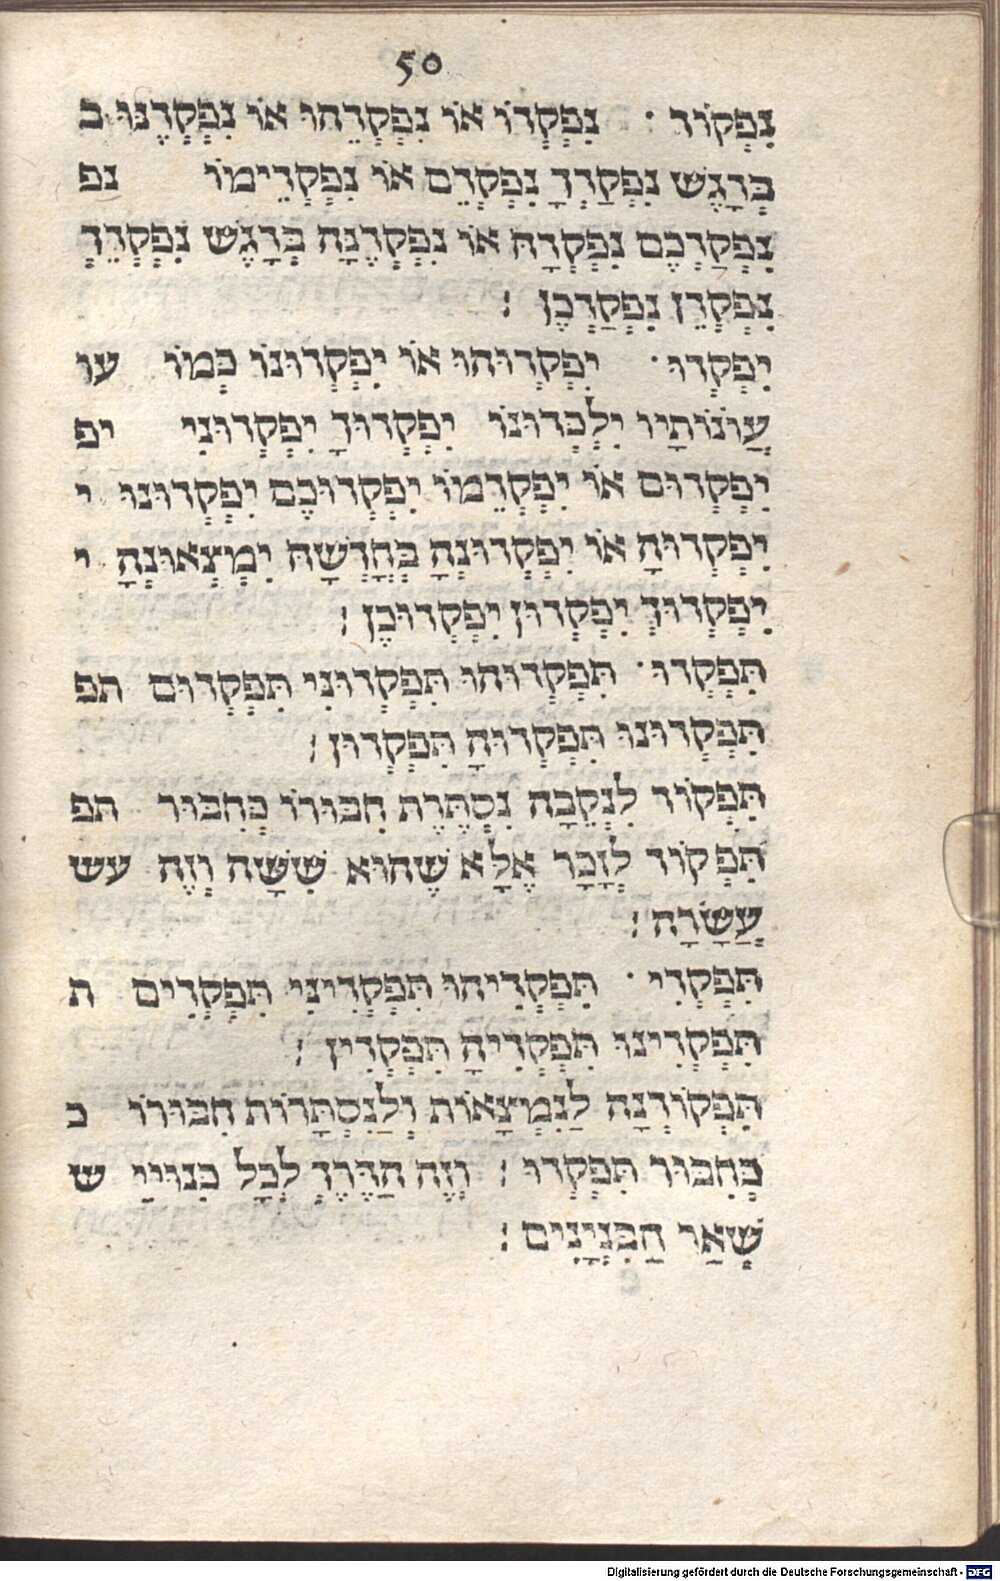 50
נִפְקוֹד · נִפְקְדוֹ אוֹ נִפְקְדֵהוּ אוֹ נִפְקְדֶנּוּ ב
בְּדָגֵשׁ נִפְקַדְךָ נִפְקְדֵם אוֹ נִפְקְדֵימוֹ נפ
נִפְקַדְכֶם נִפְקְדָהּ אוֹ נִפְקְדֶנָּה בְּדָגֵשׁ נִפְקְדֵךְ
נִפְקְדֵן נִפְקַדְכֶן :
יִפְקְדוּ · יִפְקְדוּהוּ אוֹ יִפְקְדוּנוֹ כְּמוֹ עו
עֲוֹנוֹתָיו יִלְכְּדוּנוֹ יִפְקְדוּךָ יִפְקְדוּנִי יפ
יִפְקְדוּם אוֹ יִפְקְדֵמוֹ יִפְקְדוּכֶם יִפְקְדוּנוּ י
יִפְקְדוּהָ אוֹ יִפְקְדוּנְהָ בְּחָדְשָׁהּ יִמְצָאוּנְהָ י
יִפְקְדוּךְ יִפְקְדוּן יִפְקְדוּכֶן :
תִּפְקְדוּ · תִּפְקְדוּהוּ תִּפְקְדוּנִי תִּפְקְדוּם תפ
תִּפְקְדוּנוּ תִּפְקְדוּהָ תִּפְקְדוּן :
תִּפְקוֹד לִנְקֵבָה נִסְתֶּרֶת חִבּוּרוֹ כְּחִבּוּר תפ
תִּפְקוֹד לְזָכָר אֶלָּא שֶׁהוּא שִׁשָּׁה וְזֶה עש
עֲשָׂרָה :
תִּפְקְדִי · תִּפְקְדִיהוּ תִּפְקְדִינִי תִּפְקְדִים ת
תִּפְקְדִינוּ תִּפְקְדִיהָ תִּפְקְדִין :
תִּפְקוֹדְנָה לַנִּמְצָאוֹת וְלַנִּסְתָּרוֹת חִבּוּרוֹ כ
כְּחִבּוּר תִּפְקְדוּ : וְזֶה הַדֶּרֶךְ לְכָל כִּנּוּיֵי ש
שְׁאַר הַבִּנְיָנִים :
Digitalisierung gefördert durch die Deutsche Forschungsgemeinschaft - DFG